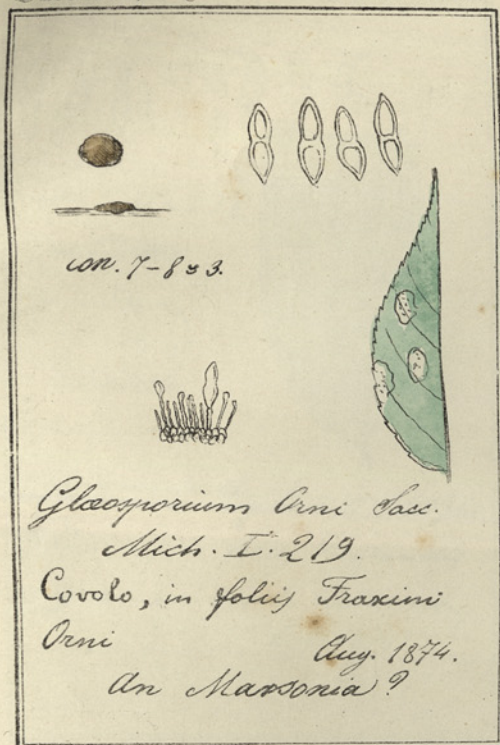 con. 7-8 ⪖ 3.
Glœosporium Orni Sacc.
Mich. I. 219.
Covolo, in foliis Fraxini
Orni
Aug. 1874.
An Marsonia?